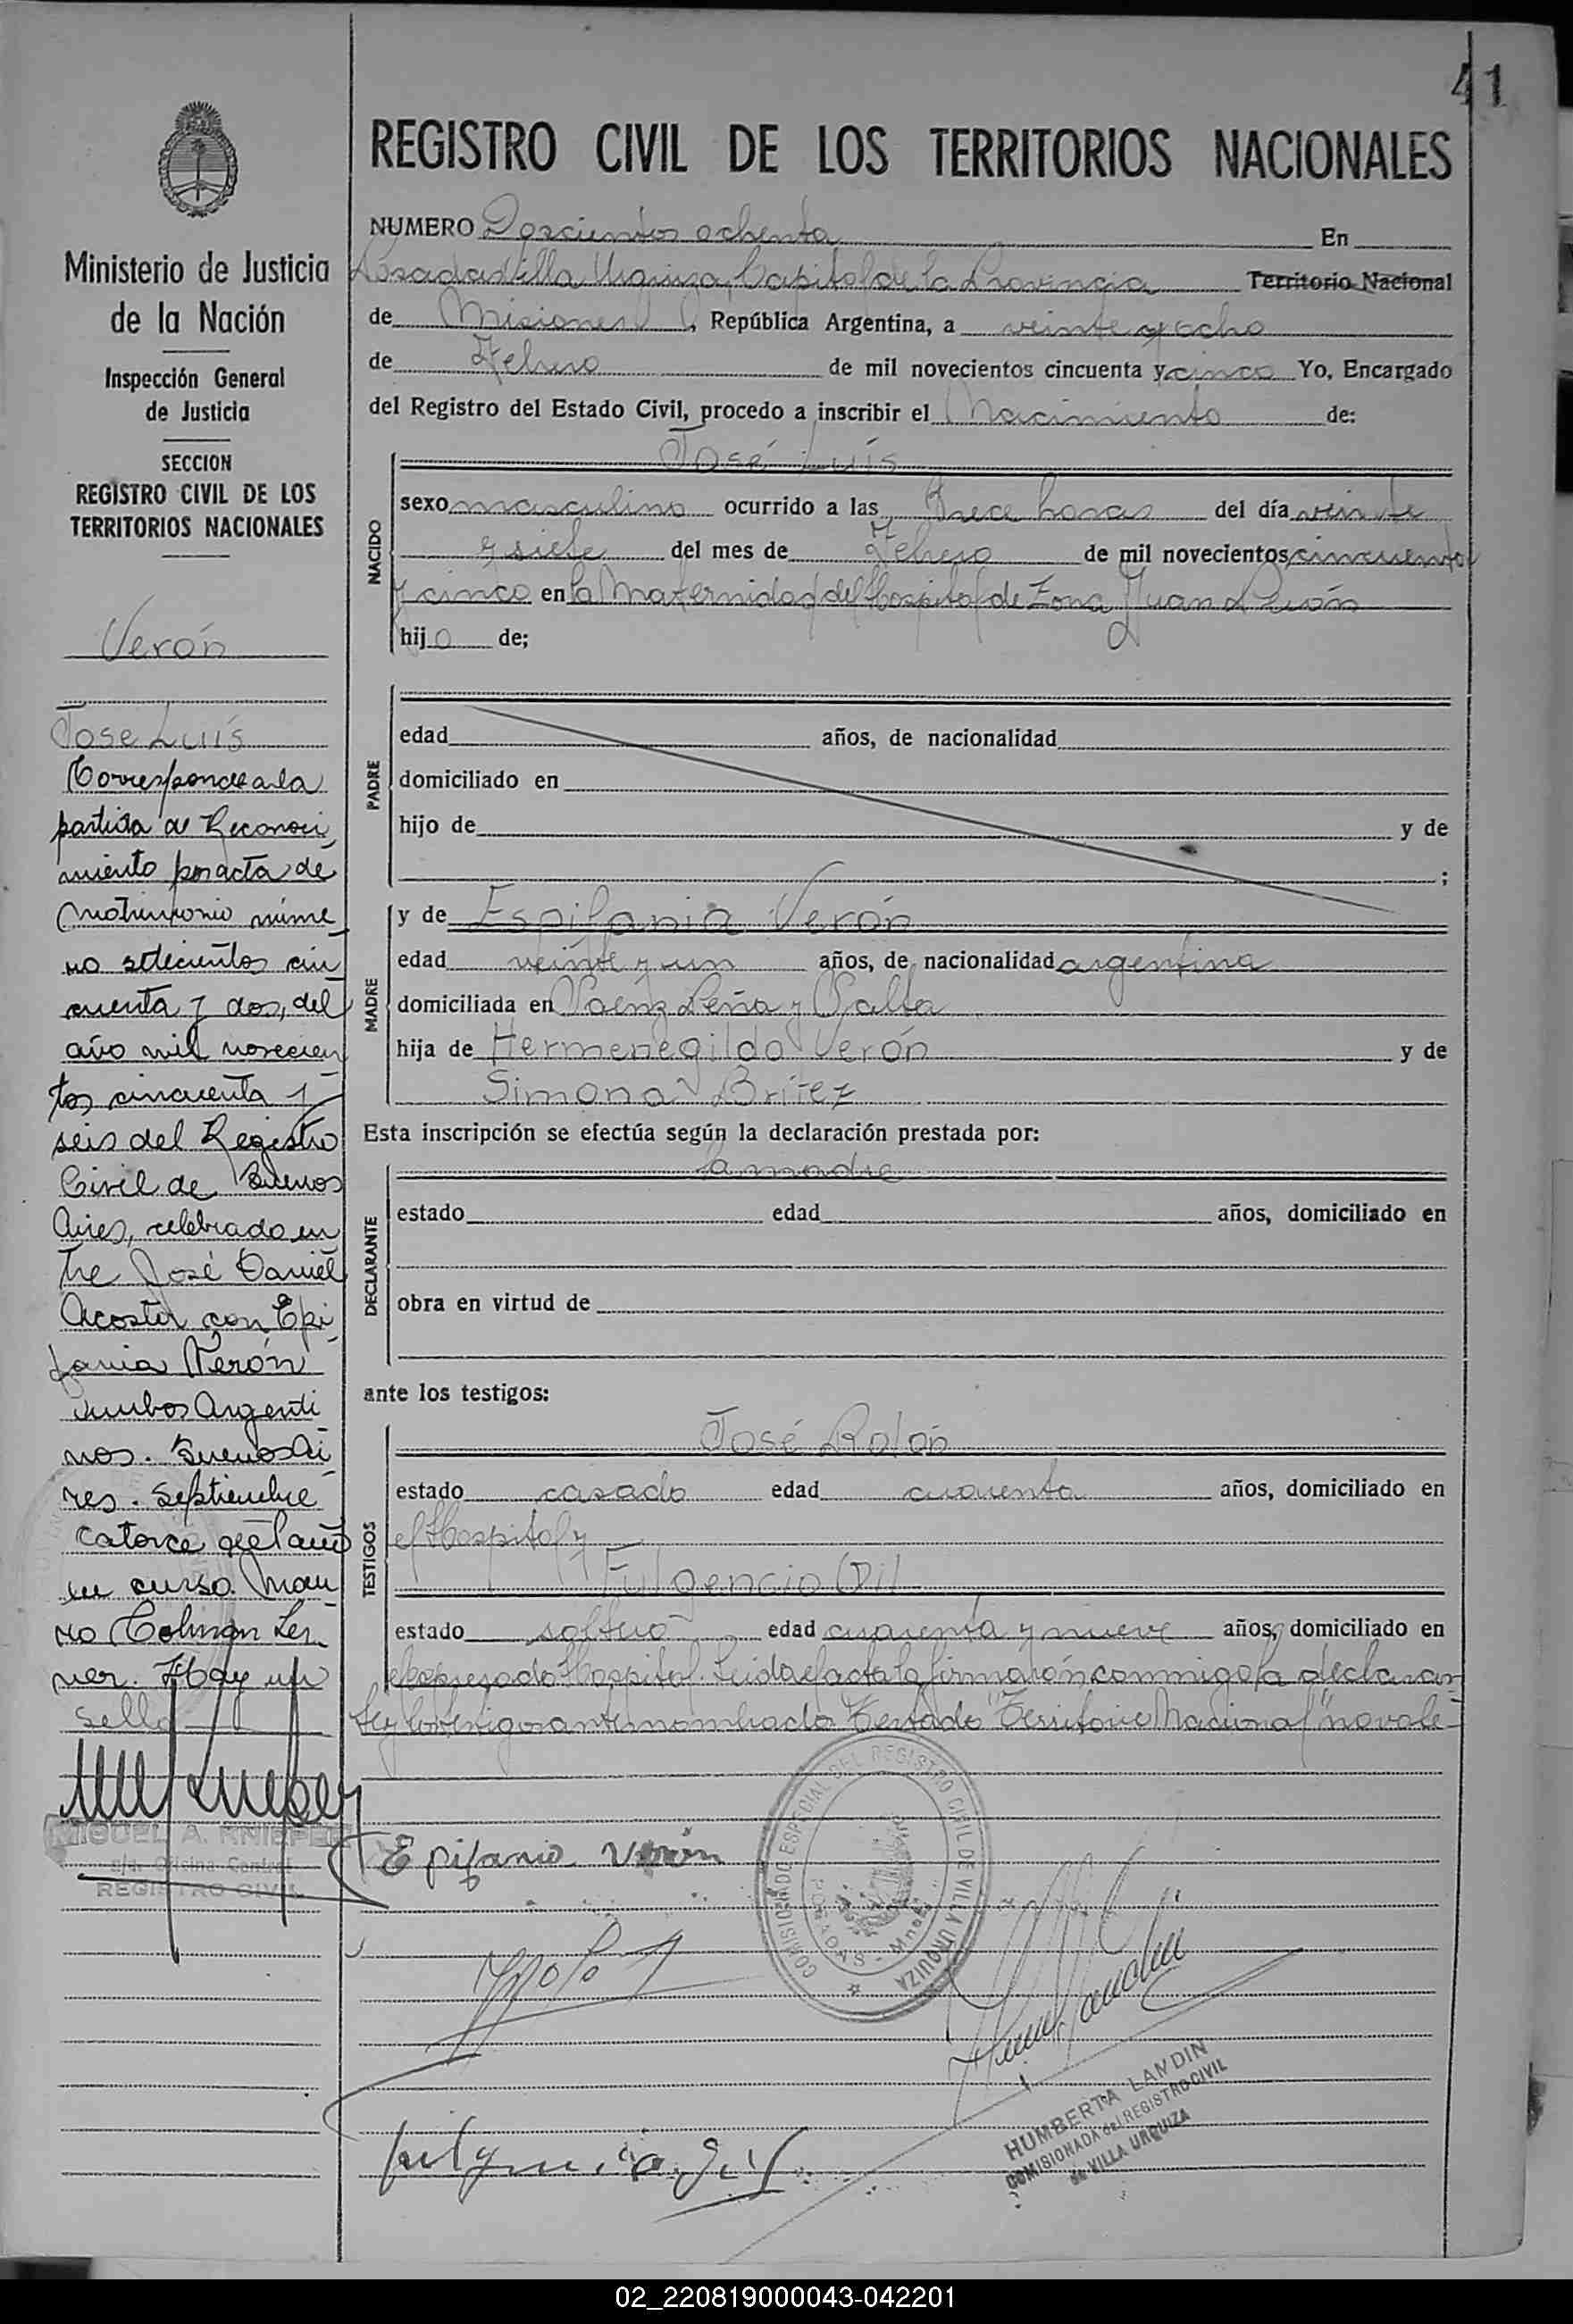 41
REGISTRO CIVIL DE LOS TERRITORIOS NACIONALES
Ministerio de Justicia
de la Nación
Inspección General
de Justicia
SECCION
REGISTRO CIVIL DE LOS
TERRITORIOS NACIONALES
Verón
José Luís
Corresponde a la
partida de Reconoci
miento por acta de
Matrimonio núme
ro setecientos cin
cuenta y dos, del
año mil novecien
tos cincuenta y
seis del Registro
Civil de Buenos
Aires, celebrado en
tre José Daniel
Acosta con Epi
fania Verón
ambos Argenti
nos. Buenos Ai
res. Septiembre
catorce del año
en curso. Mau
ro Colman Ler
ner. Hay un
Sello
MIGUEL A. KNIEPER
Oficina Central
REGISTRO CIVIL
NUMERO Doscientos ochenta En
Posadas Villa Urquiza, Capital de la Provincia Territorio Nacional
de Misiones, República Argentina, a veinte y ocho
de Febrero de mil novecientos cincuenta y cinco Yo, Encargado
del Registro del Estado Civil, procedo a inscribir el Nacimiento de:
NACIDO
José Luís
sexo masculino ocurrido a las trece horas del día veinte
y siete del mes de Febrero de mil novecientos cincuenta
y cinco en la Maternidad del Hospital de Zona Juan Perón
hijo de;
PADRE
edad años, de nacionalidad
domiciliado en
hijo de y de
;
MADRE
y de Espifania Verón
edad veinte y un años, de nacionalidad argentina
domiciliada en Saenz Peña y Salta
hija de Hermenegildo Verón y de
Simona Britez
Esta inscripción se efectúa según la declaración prestada por:
DECLARANTE
la madre
estado edad años, domiciliado en
obra en virtud de
ante los testigos:
TESTIGOS
José Rolón
estado casado edad cuarenta años, domiciliado en
el Hospital y
Fulgencio Gil
estado soltero edad cuarenta y nueve años, domiciliado en
el expresado Hospital. Leida el acta la firmarón conmigo la declaran
te y los testigos antes nombrados Testado "Territorio Nacional" no vale-
Epifania Verón
COMISIONADO ESPECIAL DEL REGISTRO CIVIL DE VILLA URQUIZA
POSADAS - Mnes
Fulgencio Gil
HUMBERTA LANDIN
COMISIONADA del REGISTRO CIVIL
de VILLA URQUIZA
02_220819000043-042201